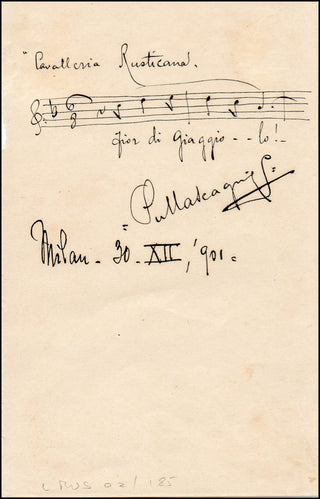 "Cavalleria Rusticana.
Fior di Giaggio - - lo! -
P. Mascagni
Milan - 30 - XII, '901 =